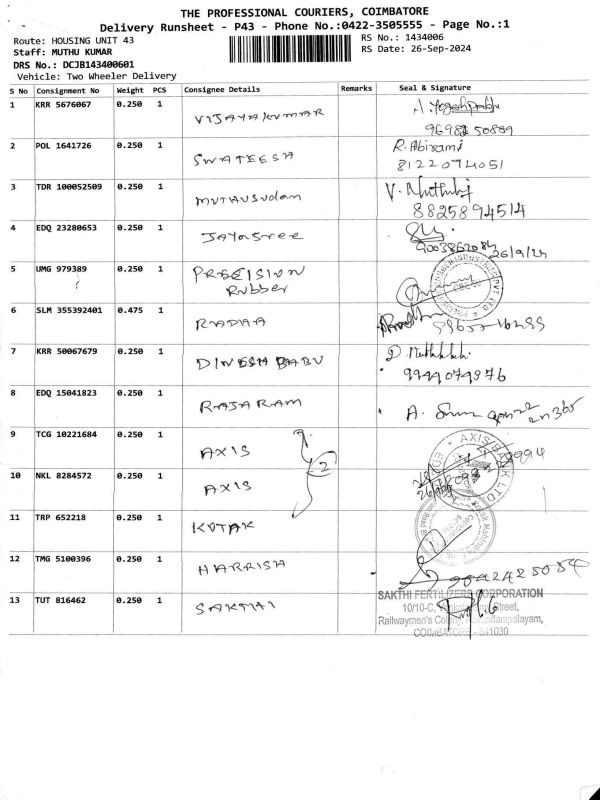 THE PROFESSIONAL COURIERS, COIMBATORE
Delivery Runsheet - P43 - Phone No.:0422-3505555 - Page No.:1
Route: HOUSING UNIT 43 RS No.: 1434006
Staff: MUTHU KUMAR RS Date: 26-Sep-2024
DRS No.: DCJB143400601
Vehicle: Two Wheeler Delivery
S No Consignment No Weight PCS Consignee Details Remarks Seal & Signature
1 KRR 5676067 0.250 1 VIJAYAKUMAR
2 POL 1641726 0.250 1 SWATEESH R. Abirami
8122074051
3 TDR 100052509 0.250 1 MUTHUSUdam
8825894514
4 EDQ 23280653 0.250 1 JAYASREE
9003862084 26/9/24
5 UMG 979389 0.250 1 PRECISION
Rubber
6 SLM 355392401 0.475 1 RADHA
7 KRR 50067679 0.250 1 DINESH BABU
9944074876
8 EDQ 15041823 0.250 1 RAJARAM
9 TCG 10221684 0.250 1 AXIS AXIS BANK LTD
10 NKL 8284572 0.250 1 AXIS 2
11 TRP 652218 0.250 1 KOTAK
12 TMG 5100396 0.250 1 HARRISH
9042425084
13 TUT 816462 0.250 1 SAKTHI
SAKTHI FERTILIZERS CORPORATION
10/10-C, Street,
Railwaymen's Colony,
COIMBATORE - 641030